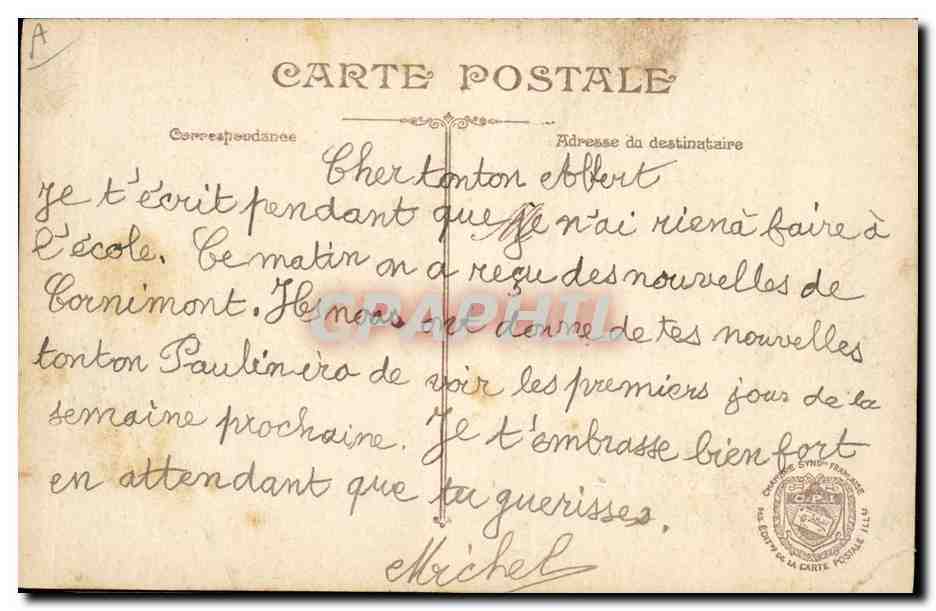 A
CARTE POSTALE
Correspondance
Adresse du destinataire
Cher tonton Albert
Je t'écrit pendant que je n'ai rien à faire à
l'école. Ce matin on a reçu des nouvelles de
Cornimont. Ils nous ont donne de tes nouvelles
tonton Paulin ira de voir les premiers jour de la
semaine prochaine. Je t'embrasse bien fort
en attendant que tu guerisses.
Michel
CPAPHIL
CHAMBRE SYNDle FRANÇAISE
DES ÉDITrs DE LA CARTE POSTALE ILLée
C.P.I